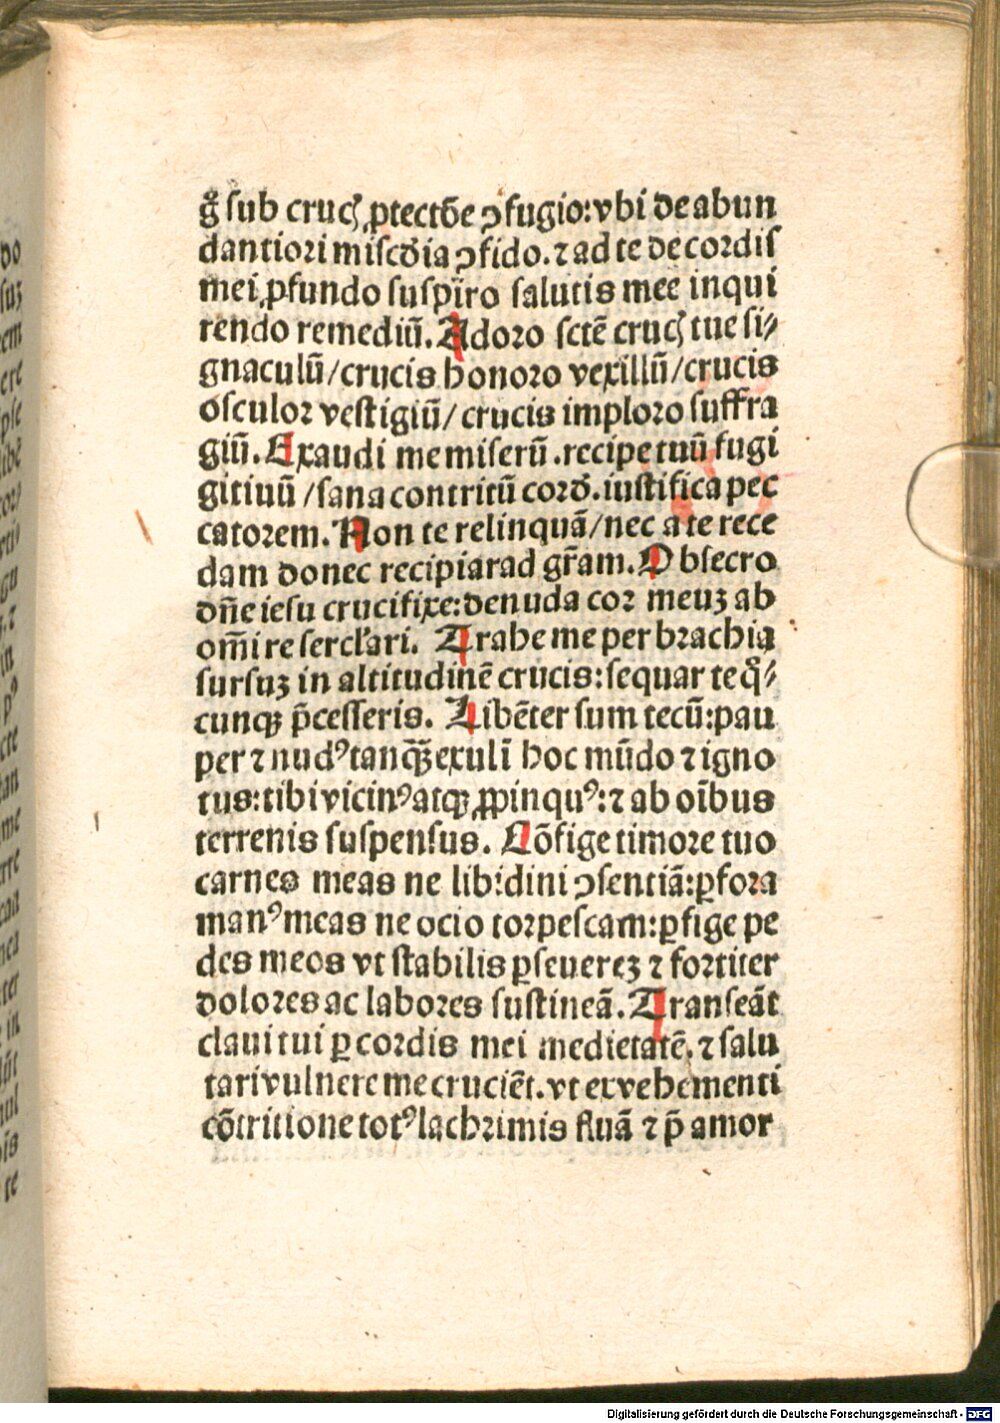 g̊ sub cruc̜ ꝓtectōe ꝯfugio:vbi de abun
dantiori miſcd̄ia ꝯfido.⁊ ad te de cordiſ
mei ꝓfundo ſuſpīro ſalutis mee inqui
rendo remediū. Adoro ſctē cruc̜ tue ſi⸗
gnaculū/crucis honoro vexillū/crucis
oſculor veſtigiū/ crucis imploro ſuffra
giū. Exaudi me miſerū .recipe tuū fugi
gitiuū /ſana contritū cord̄. iuſtifica pec
catorem. Non te relinquā/nec a te rece
dam donec recipiar ad gr̄am. Obſecro
dn̄e ieſu crucifixe:denuda cor meuꝫ ab
om̄i re ſercl̓ari. Trahe me per brachia
ſurſuꝫ in altitudinē crucis:ſequar te q̊⸗
cunqꝫ p̄ceſſeris. Libēter ſum tecū:pau
per ⁊ nudꝰ tanqꝫ̄ exul ī hoc mūdo ⁊ igno
tus:tibi vicinꝰ atqꝫ ꝓpinquꝰ:⁊ ab oībus
terrenis ſuſpenſus. Cōfige timore tuo
carnes meas ne libidini ꝯſentiā:ꝑfora
manꝰ meas ne ocio torpeſcam:ꝑfige pe
des meos vt ſtabilis ꝑſeuereꝫ ⁊ fortiter
dolores ac labores ſuſtineā. Tranſeāt
claui tui ꝑ cordis mei medietatē. ⁊ ſalu
tari vulnere me cruciēt. vt ex vehementi
cōtritione totꝰ lachrimis fluā ⁊ p̄ amor
Digitalisierung gefördert durch die Deutsche Forschungsgemeinschaft - DFG